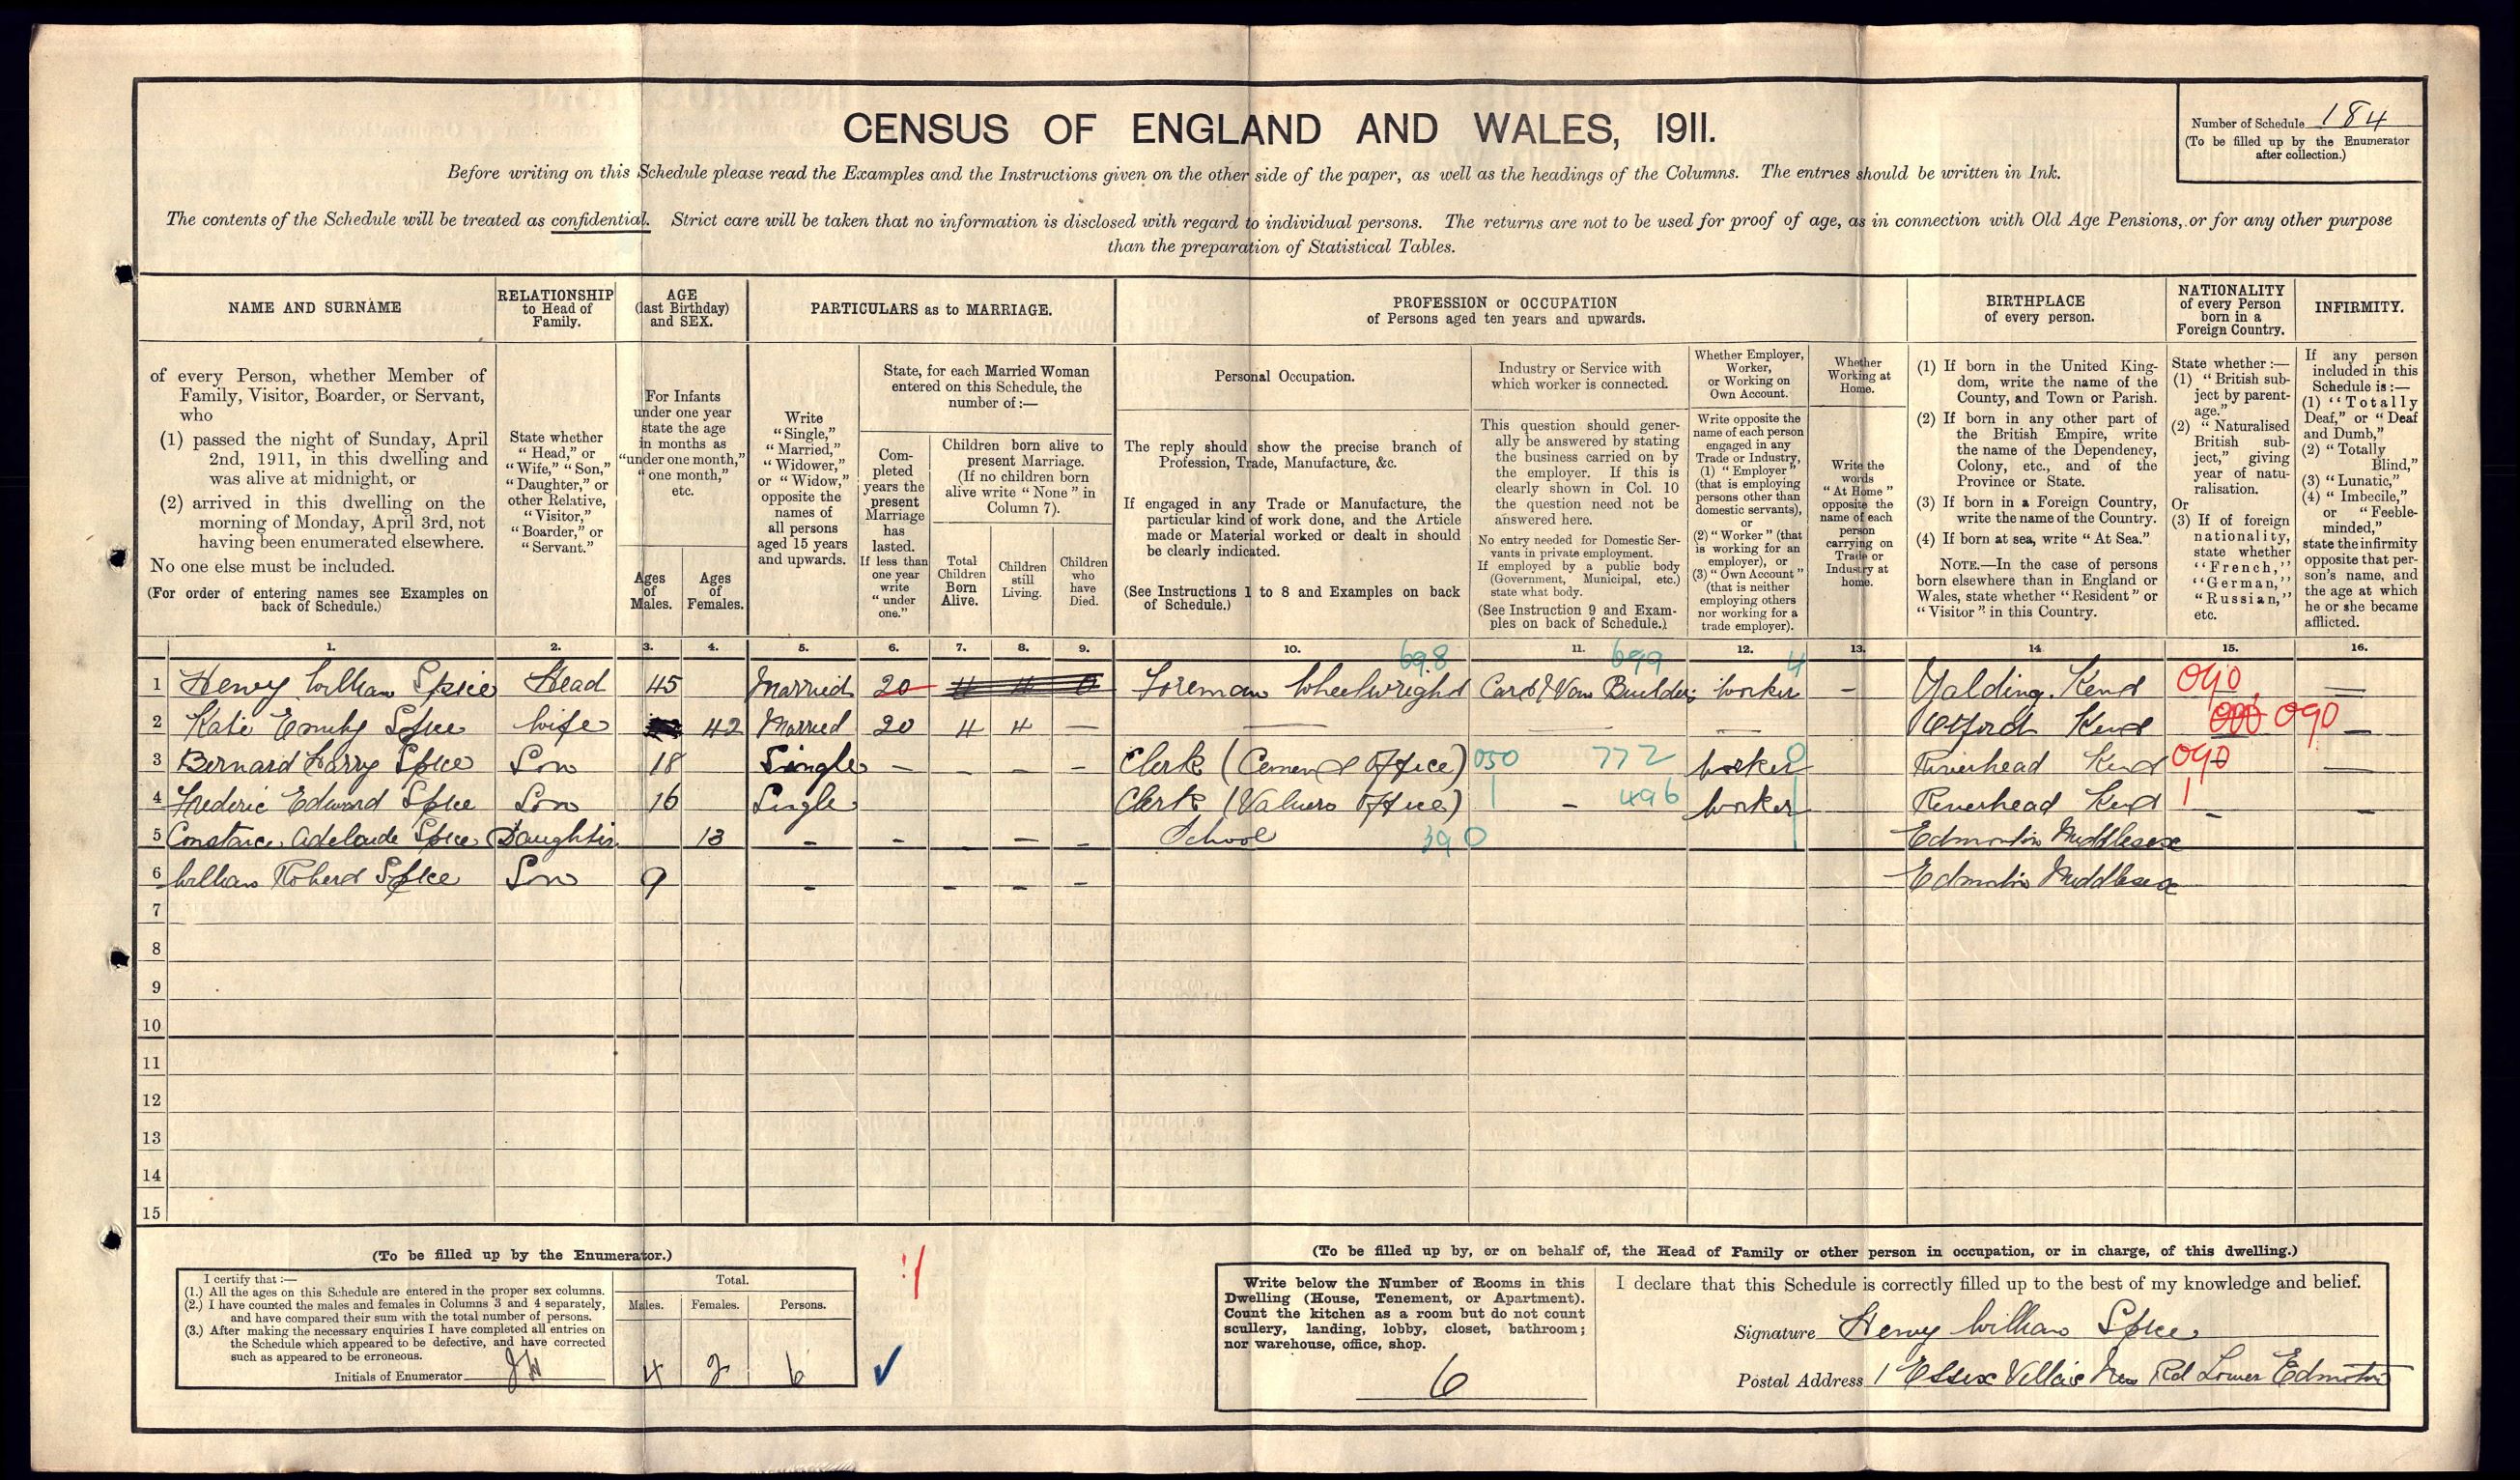 CENSUS OF ENGLAND AND WALES, 1911.
Number of Schedule 184
(To be filled up by the Enumerator
after collection.)
Before writing on this Schedule please read the Examples and the Instructions given on the other side of the paper, as well as the headings of the Columns. The entries should be written in Ink.
The contents of the Schedule will be treated as confidential. Strict care will be taken that no information is disclosed with regard to individual persons. The returns are not to be used for proof of age, as in connection with Old Age Pensions, or for any other purpose
than the preparation of Statistical Tables.
NAME AND SURNAME
of every Person, whether Member of
Family, Visitor, Boarder, or Servant,
who
(1) passed the night of Sunday, April
2nd, 1911, in this dwelling and
was alive at midnight, or
(2) arrived in this dwelling on the
morning of Monday, April 3rd, not
having been enumerated elsewhere.
No one else must be included.
(For order of entering names see Examples on
back of Schedule.)
RELATIONSHIP
to Head of
Family.
State whether
"Head," or
"Wife," "Son,"
"Daughter," or
other Relative,
"Visitor,"
"Boarder," or
"Servant."
AGE
(last Birthday)
and SEX.
For Infants
under one year
state the age
in months as
"under one month,"
"one month,"
etc.
Ages
of
Males.
Ages
of
Females.
PARTICULARS as to MARRIAGE.
Write
"Single,"
"Married,"
"Widower,"
or "Widow,"
opposite the
names of
all persons
aged 15 years
and upwards.
State, for each Married Woman
entered on this Schedule, the
number of:—
Com-
pleted
years the
present
Marriage
has
lasted.
If less than
one year
write
"under
one."
Children born alive to
present Marriage.
(If no children born
alive write "None" in
Column 7).
Total
Children
Born
Alive.
Children
still
Living.
Children
who
have
Died.
PROFESSION or OCCUPATION
of Persons aged ten years and upwards.
Personal Occupation.
The reply should show the precise branch of
Profession, Trade, Manufacture, &c.
If engaged in any Trade or Manufacture, the
particular kind of work done, and the Article
made or Material worked or dealt in should
be clearly indicated.
(See Instructions 1 to 8 and Examples on back
of Schedule.)
Industry or Service with
which worker is connected.
This question should gener-
ally be answered by stating
the business carried on by
the employer. If this is
clearly shown in Col. 10
the question need not be
answered here.
No entry needed for Domestic Ser-
vants in private employment.
If employed by a public body
(Government, Municipal, etc.)
state what body.
(See Instruction 9 and Exam-
ples on back of Schedule.)
Whether Employer,
Worker,
or Working on
Own Account.
Write opposite the
name of each person
engaged in any
Trade or Industry,
(1) "Employer"
(that is employing
persons other than
domestic servants),
or
(2) "Worker" (that
is working for an
employer), or
(3) "Own Account"
(that is neither
employing others
nor working for a
trade employer).
Whether
Working at
Home.
Write the
words
"At Home"
opposite the
name of each
person
carrying on
Trade or
Industry at
home.
BIRTHPLACE
of every person.
(1) If born in the United King-
dom, write the name of the
County, and Town or Parish.
(2) If born in any other part of
the British Empire, write
the name of the Dependency,
Colony, etc., and of the
Province or State.
(3) If born in a Foreign Country,
write the name of the Country.
(4) If born at sea, write "At Sea."
NOTE.—In the case of persons
born elsewhere than in England or
Wales, state whether "Resident" or
"Visitor" in this Country.
NATIONALITY
of every Person
born in a
Foreign Country.
State whether:—
(1) "British sub-
ject by parent-
age."
(2) "Naturalised
British sub-
ject," giving
year of natu-
ralisation.
Or
(3) If of foreign
nationality,
state whether
"French,"
"German,"
"Russian,"
etc.
INFIRMITY.
If any person
included in this
Schedule is:—
(1) "Totally
Deaf," or "Deaf
and Dumb,"
(2) "Totally
Blind,"
(3) "Lunatic,"
(4) "Imbecile,"
or "Feeble-
minded,"
state the infirmity
opposite that per-
son's name, and
the age at which
he or she became
afflicted.
1. 2. 3. 4. 5. 6. 7. 8. 9. 10. 11. 12. 13. 14 15. 16.
698 699 4
1 Henry William Spice Head 45 Married 20 4 4 0 Foreman Wheelwright Cart & Van Builders Worker — Yalding. Kent 090 —
2 Kate Emily Spice Wife 42 Married 20 4 4 — — — — Otford Kent 000 090 —
3 Bernard Harry Spice Son 18 Single — — — — Clerk (Cement Office) 050 772 Worker 0 Riverhead Kent 090 —
4 Frederic Edward Spice Son 16 Single Clerk (Valuers Office) 1 — 496 Worker Riverhead Kent 1 — —
5 Constance Adelaide Spice Daughter 13 — — — — — School 390 Edmonton Middlesex
6 William Robert Spice Son 9 — — — — Edmonton Middlesex
7
8
9
10
11
12
13
14
15
(To be filled up by the Enumerator.)
I certify that:—
(1.) All the ages on this Schedule are entered in the proper sex columns.
(2.) I have counted the males and females in Columns 3 and 4 separately,
and have compared their sum with the total number of persons.
(3.) After making the necessary enquiries I have completed all entries on
the Schedule which appeared to be defective, and have corrected
such as appeared to be erroneous.
Initials of Enumerator
Total.
Males. Females. Persons.
4 2 6
(To be filled up by, or on behalf of, the Head of Family or other person in occupation, or in charge, of this dwelling.)
Write below the Number of Rooms in this
Dwelling (House, Tenement, or Apartment).
Count the kitchen as a room but do not count
scullery, landing, lobby, closet, bathroom;
nor warehouse, office, shop.
6
I declare that this Schedule is correctly filled up to the best of my knowledge and belief.
Signature Henry William Spice
Postal Address 1 Essex Villas New Rd Lower Edmonton